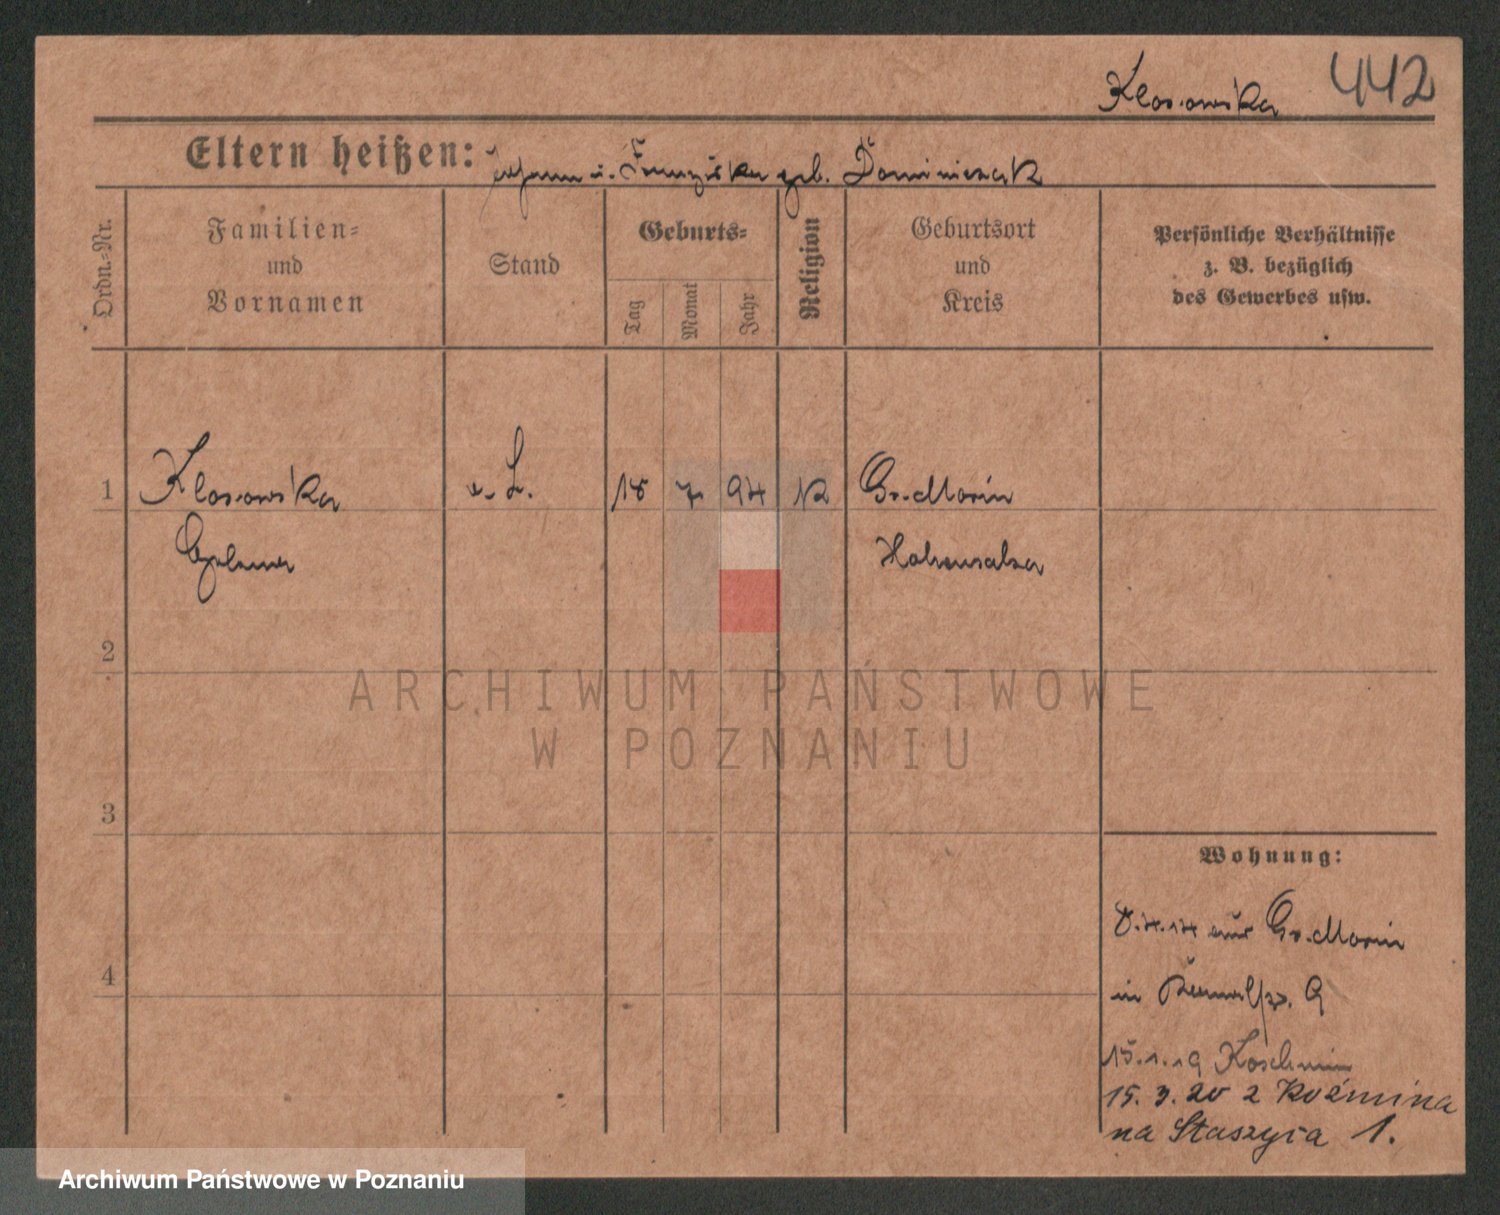 Klossowska 442
Eltern heißen: Johann u. Franziska geb. Dominiczak
Ordn.-Nr.
Familien-
und
Vornamen
Stand
Geburts-
Tag
Monat
Jahr
Religion
Geburtsort
und
Kreis
Persönliche Verhältnisse
z. B. bezüglich
des Gewerbes usw.
1 Klossowska 18 7 94 K Gr. Morin
Hohensalza
2
ARCHIWUM PAŃSTWOWE
W POZNANIU
3
Wohnung:
aus Gr. Morin
4
in 9
15.1.19 Koschmin
15.3.20 z Koźmina
na Staszyca 1.
Archiwum Państwowe w Poznaniu